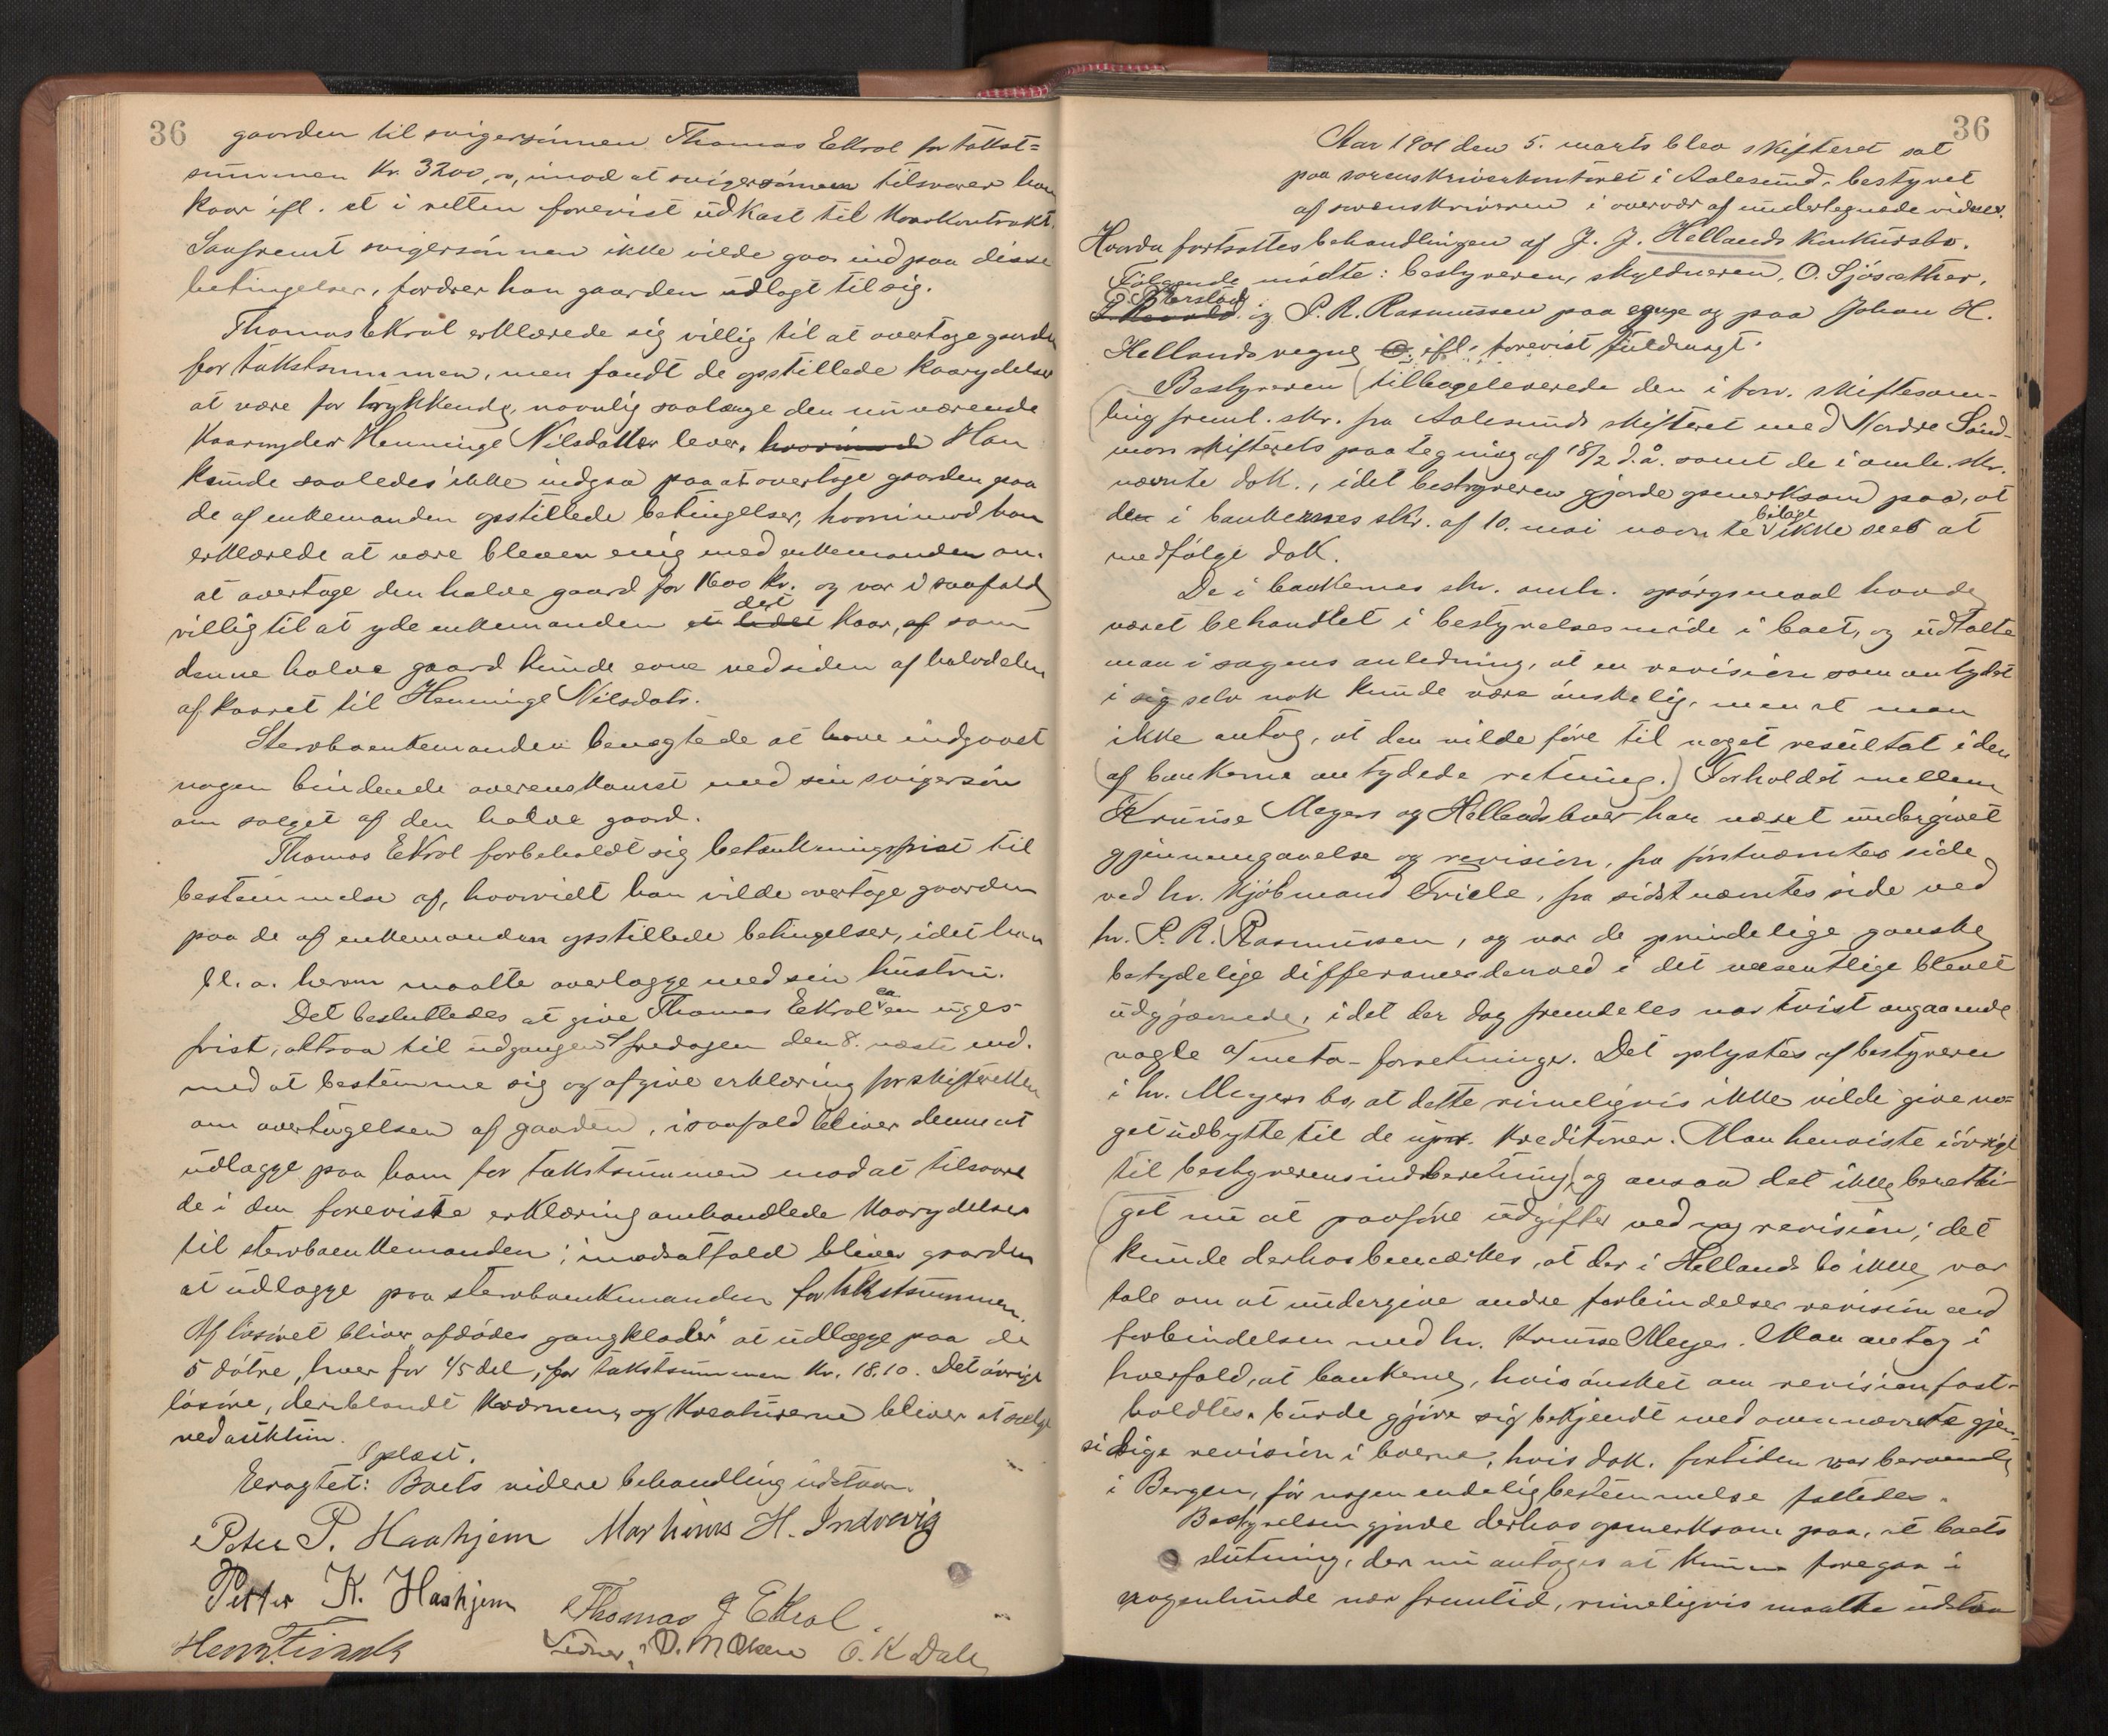 36
gaarden til svigersønnen Thomas Ekrol for takst=
summen Kr. 3200,00, imod at svigersønnen tilsvarer ham
kaar ifl. et i retten forevist udkast til Kaarkontrakt.
Saafremt svigersønnen ikke vilde gaa ind paa disse
betingelser, fordrer han gaarden udlagt til sig.
Thomas Ekrol erklærede sig villig til at overtage gaarden
for takstsummen, men fandt de opstillede kaarydelser
at være for trykkende, navnlig saalænge den nuværende
kaarnyder Henninge Nilsdatter lever. hvorimod Han
kunde saaledes ikke indgaa paa at overtage gaarden paa
de af enkemanden opstillede betingelser, hvorimod han
erklærede at være bleven enig med enkemanden om
at overtage den halve gaard for 1600 kr. og var i saafald
villig til at yde enkemanden det kaar, af som
denne halve gaard kunde evne ved siden af halvdelen
af kaaret til Henninge Nilsdatr.
Stervboenkemanden benegtede at have indgaaet
nogen bindende overenskomst med sin svigersøn
om salget af den halve gaard.
Thomas Ekrol forbeholdt sig betænkningsfrist til
bestemmelse af, hvorvidt han vilde overtage gaarden
paa de af enkemanden opstillede betingelser, idet han
bl. a. herom maatte overlægge med sin hustru.
Det besluttedes at give Thomas Ekrol ca en uges
frist, altsaa til udgangen af fredagen den 8. næste md.
med at bestemme sig og afgive erklæring for skifteretten
om overtagelsen af gaarden, i saafald bliver denne at
udlægge paa ham for takstsummen mod at tilsvare
de i den foreviste erklæring omhandlede kaarydelser
til stervboenkemanden; i modsatfald bliver gaarden
at udlægge paa stervboenkemanden for takstsummen.
Af løsøret bliver "afdødes gangklæder" at udlægge paa de
5 døtre, hver for 1/5 del, for takstsummen kr. 18.10. Det øvrige
løsøre, deriblandt kværnen og kreaturerne bliver at sælge
ved auktion.
Oplæst.
Eragtet: Boets videre behandling udstaar.
Peter P. Haahjem Marhinus H. Indrevig
Petter K. Haahjem Thomas J Ekrol
Henr. Finck Vidner: O. M Olsen O. K Dale
36
Aar 1901 den 5. marts blev skifteret sat
paa sorenskriverkontoret i Aalesund, bestyret
af sorenskriveren i overvær af undertegnede vidner.
Hvorda fortsattes behandlingen af J. J. Hellands konkursbo.
Følgende mødte: bestyreren, skyldneren, O. Sjøsæther,
og P. R. Rasmussen paa egne og paa Johan H.
Hellands vegne ifl. forevist fuldmagt.
Bestyreren (tilbageleverede den i forr. skiftesam-
ling freml. skr. fra Aalesunds skifteret med Nordre Sønd-
mørs skifterets paategning af 18/2 d.å. samt de i omh. skr.
nævnte dok., idet bestyreren gjorde opmerksom paa, at
den i bankernes skr. af 10. mai nævnte bilage ikke sees at
medfølge dok.
De i bankernes skr. omh. spørgsmaal havde
været behandlet i bestyrelsesmøde i boet, og udtalte
man i sagens anledning, at en revision som antydet
i sig selv nok kunde være ønskelig, men at man
ikke antog, at den vilde føre til noget resultat i den
(af bankerne antydede retning.) Forholdet mellem
Krunse Meyers og Hellands boer har været undergivet
gjennemgaaelse og revision, fra førstnævntes side
ved hr. kjøbmand Friele, fra sidstnævntes side ved
hr. P. R. Rasmussen, og var de prindelige ganske
betydelige differancer derved i det væsentlige blevet
udgjævnede, idet der dog fremdeles var tvist angaaende
nogle a/meta-forretninger. Det oplystes af bestyreren
i hr. Meyers bo, at dette rimeligvis ikke vilde give no=
get udbytte til de upr. kreditorer. Man henviste iøvrigt
til bestyrerens indberetning, og ansaa det ikke beretti-
get nu at paaføre udgifter ved ny revision; det
kunde derhos bemærkes, at der i Hellands bo ikke var
tale om at undergive andre forbindelser revision end
forbindelsen med hr. Krunse Meyer. Man antog i
hverfald, at bankerne, hvis ønsket om revision fast-
holdtes, burde gjøre sig bekjendt med ovennævnte gjen-
sidige revision i boerne, hvis dok. fortiden var beroende
i Bergen, før nogen endelig bestemmelse fattedes.
Bestyrelsen gjorde derhos opmerksom paa, at boets
slutning, der nu antages at kunne foregaa i
nogenlunde nær fremtid, rimeligvis maatte udstaa